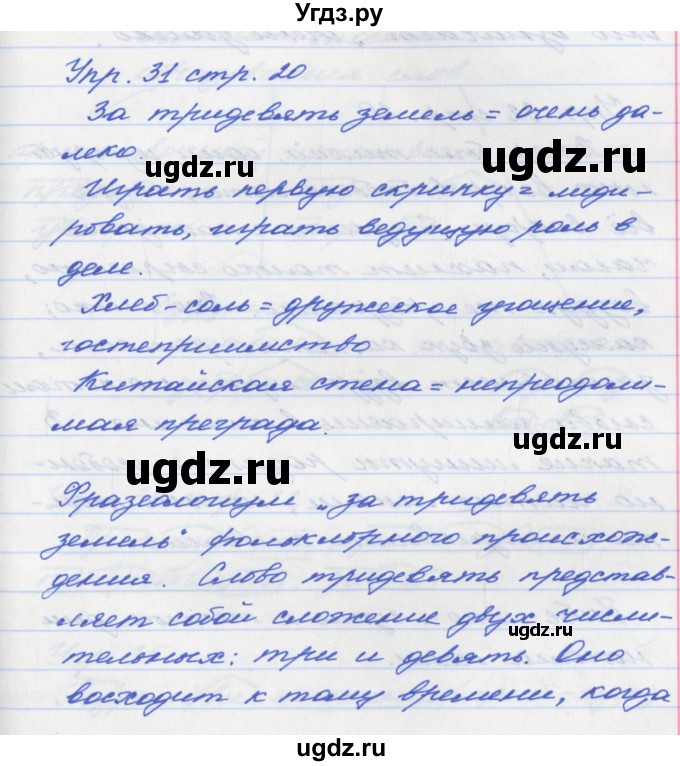 Угдз.ру
Упр. 31 стр. 20
За тридевять земель = очень да-
леко
ugdz.ru ugdz.ru
Играть первую скрипку = лиди-
ровать, играть ведущую роль в
деле.
ugdz.ru
Хлеб-соль = дружеское угощение,
гостеприимство
Китайская стена = непреодоли-
мая преграда.
ugdz.ru
ugdz.ru
Фразеологизм „за тридевять
земель" фольклорного происхож-
дения. Слово тридевять представ-
ляет собой сложение двух числи-
ugdz.ru
тельных: три и девять. Оно
восходит к тому времени, когда
ugdz.ru